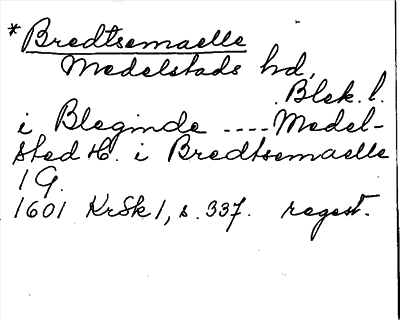 *Bredtsemaelle
Medelstads hd,
Blek. l.
i Bleginde ---- Medel-
sted H. i Bredtsemaelle
1 G.
1601 KrSk 1, s. 337. regest.